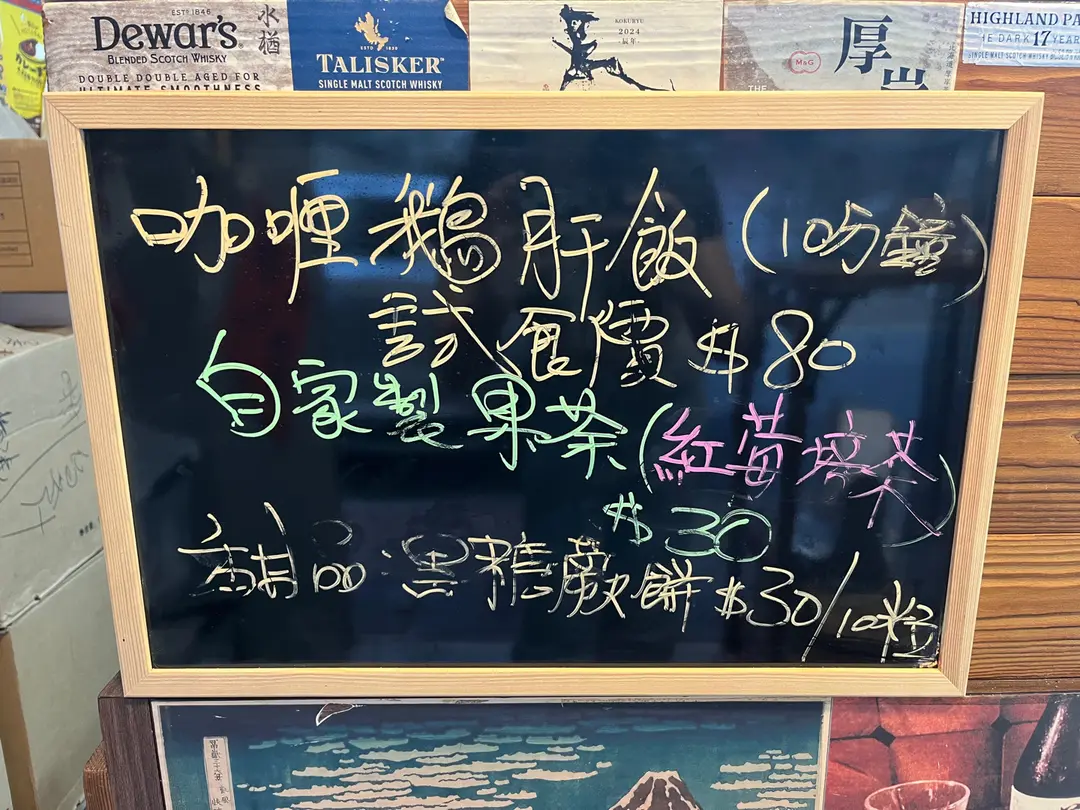 EST. 1846
Dewar's
BLENDED SCOTCH WHISKY
DOUBLE DOUBLE AGED FOR
ULTIMATE SMOOTHNESS
水楢
ESTD 1830
TALISKER
SINGLE MALT SCOTCH WHISKY
KOKURYU
2024
辰年
M&G
THE
厚岸
HIGHLAND PA
17 YEAR
SINGLE MALT SCOTCH WHISKY
咖喱鵝肝飯(10分鐘)
試食價 $80
自家製果茶(紅莓焙茶)
$30
甜品:黑糖蕨餅 $30/10粒